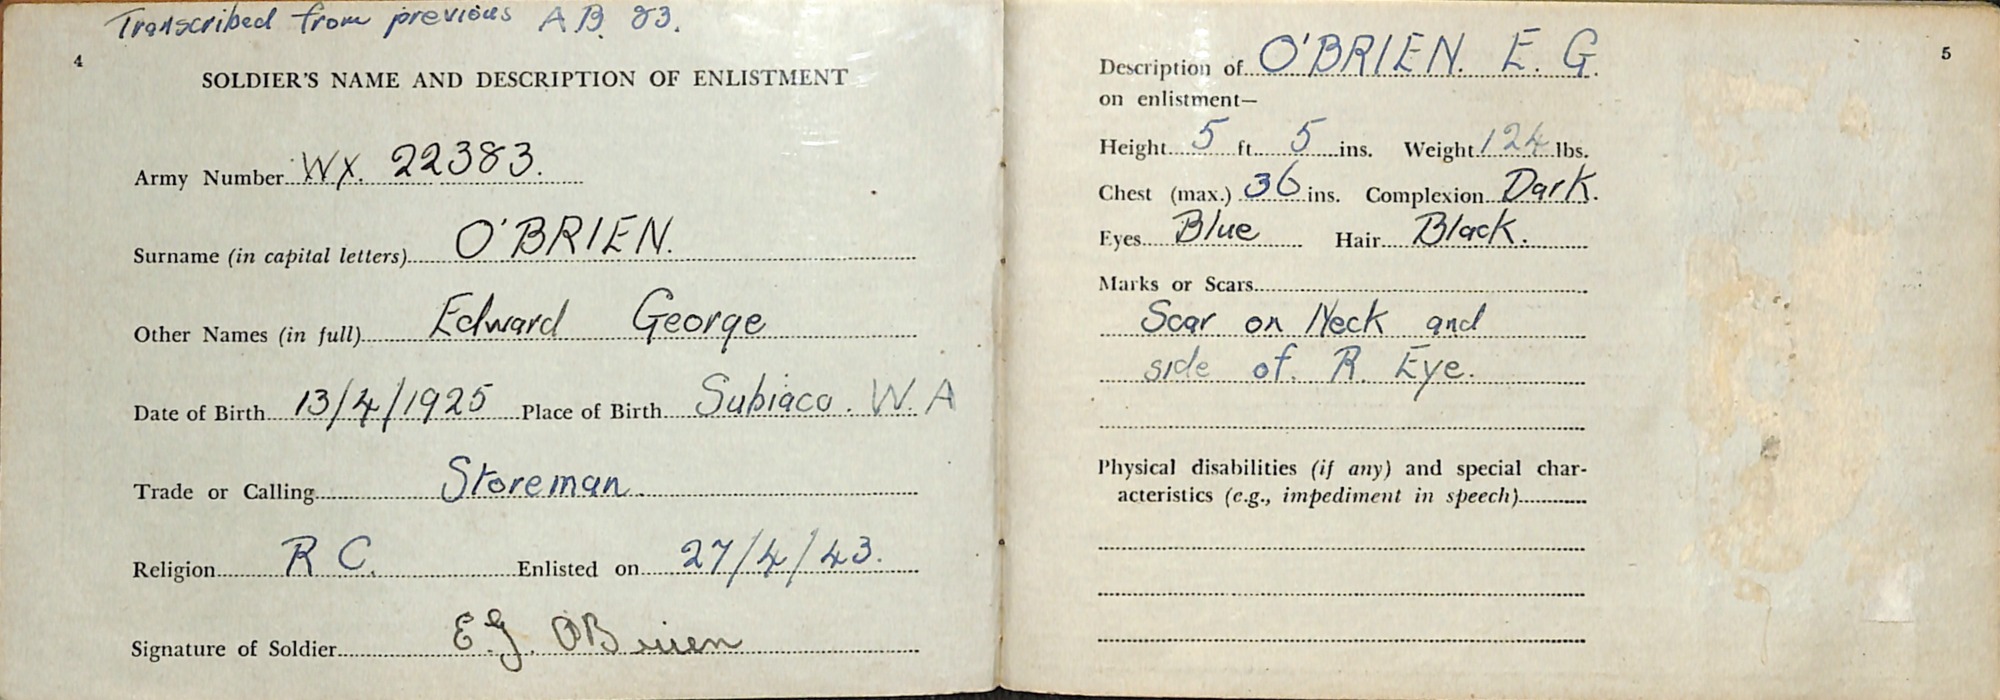 Transcribed from previous A.B. 83.
4
SOLDIER'S NAME AND DESCRIPTION OF ENLISTMENT
Army Number WX. 22383.
Surname (in capital letters) O'BRIEN.
Other Names (in full) Edward George
Date of Birth 13/4/1925 Place of Birth Subiaco. W.A
Trade or Calling Storeman.
Religion R C. Enlisted on 27/4/43.
Signature of Soldier E.G. O'Brien
5
Description of O'BRIEN. E. G.
on enlistment—
Height 5 ft. 5 ins. Weight 124 lbs.
Chest (max.) 36 ins. Complexion Dark.
Eyes Blue Hair Black.
Marks or Scars
Scar on Neck and
side of. R. Eye.
Physical disabilities (if any) and special char-
acteristics (e.g., impediment in speech)